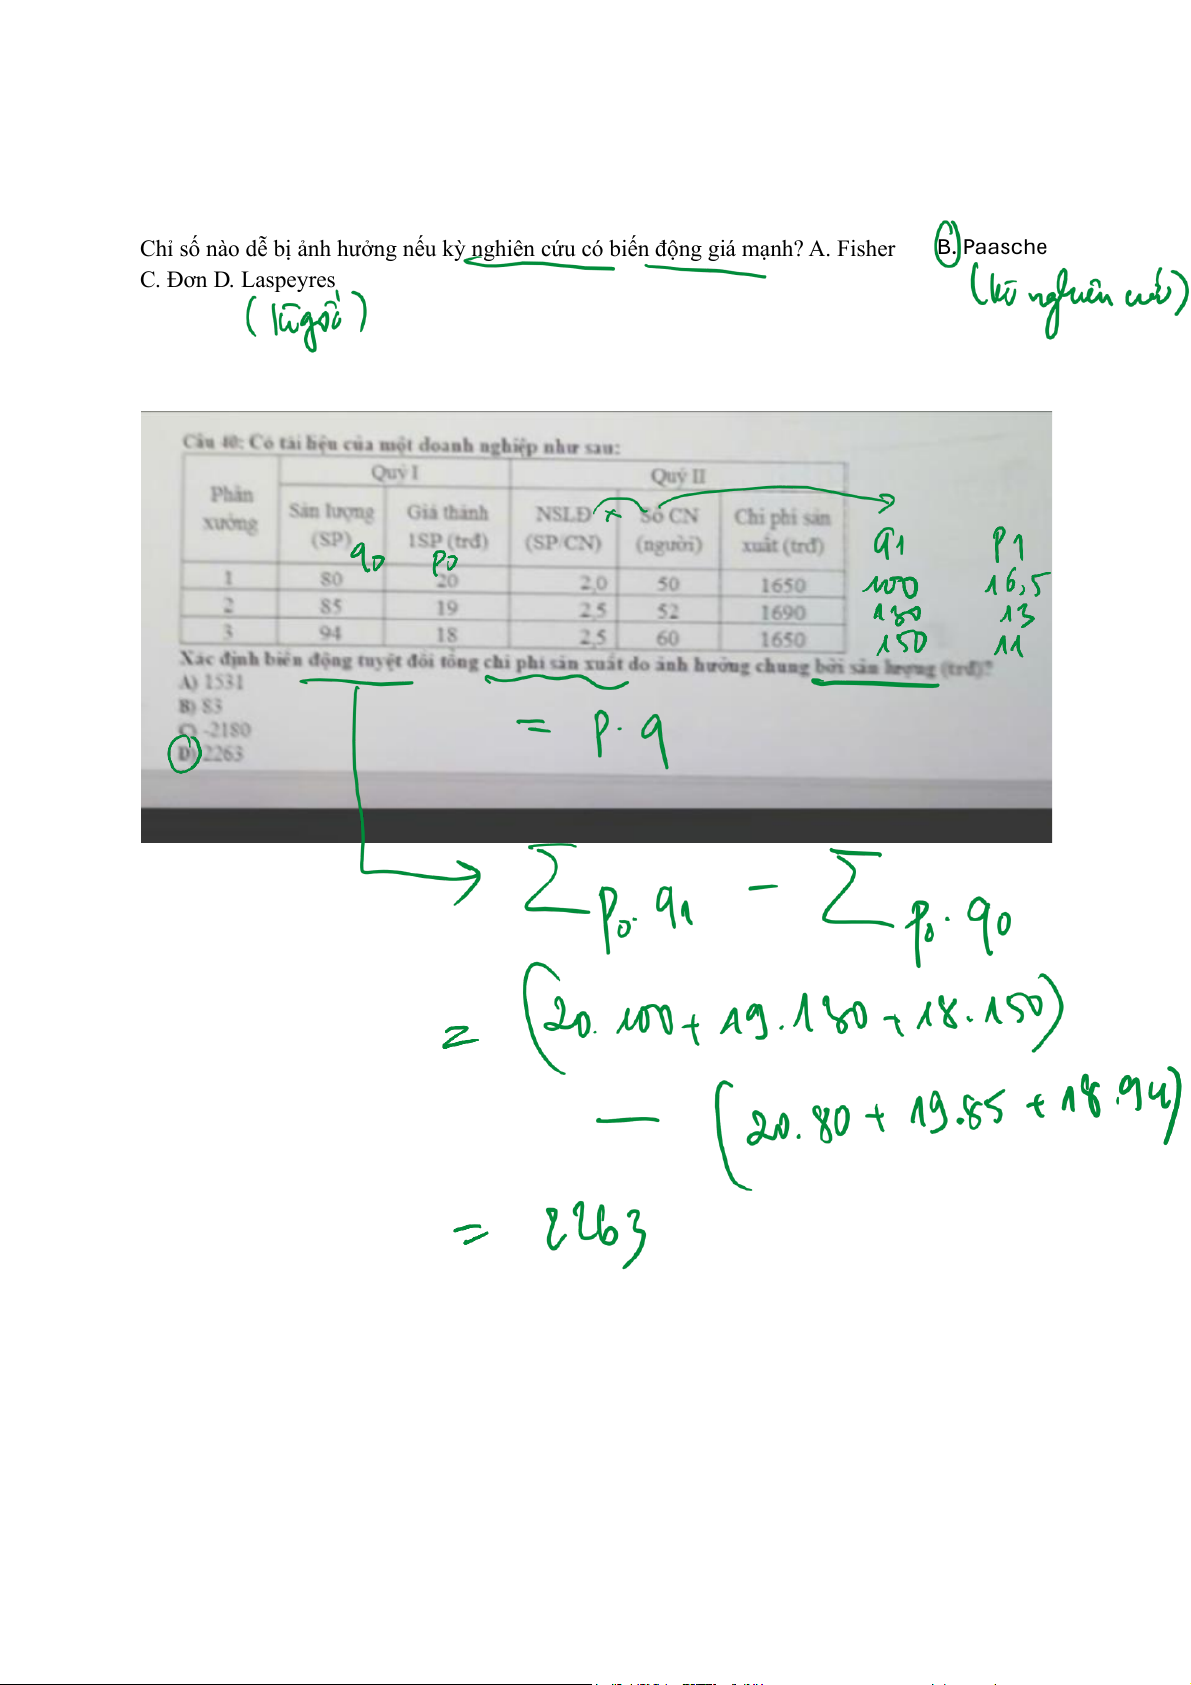 Chỉ số nào dễ bị ảnh hưởng nếu kỳ nghiên cứu có biến động giá mạnh? A. Fisher B. Paasche
C. Đơn D. Laspeyres
(kì nghiên cứu)
(kì gốc)
Câu 40: Có tài liệu của một doanh nghiệp như sau:
Phân xưởng Quý I Quý II
Sản lượng (SP) Giá thành 1SP (trđ) NSLĐ (SP/CN) Số CN (người) Chi phí sản xuất (trđ)
q0 p0 × q1 p1
1 80 20 2,0 50 1650 100 16,5
2 85 19 2,5 52 1690 130 13
3 94 18 2,5 60 1650 150 11
Xác định biến động tuyệt đối tổng chi phí sản xuất do ảnh hưởng chung bởi sản lượng (trđ)?
A) 1531
B) 83
C) -2180
D) 2263
= p . q
∑ p0 . q1 − ∑ p0 . q0
= (20.100 + 19.130 + 18.150)
− (20.80 + 19.85 + 18.94)
= 2263